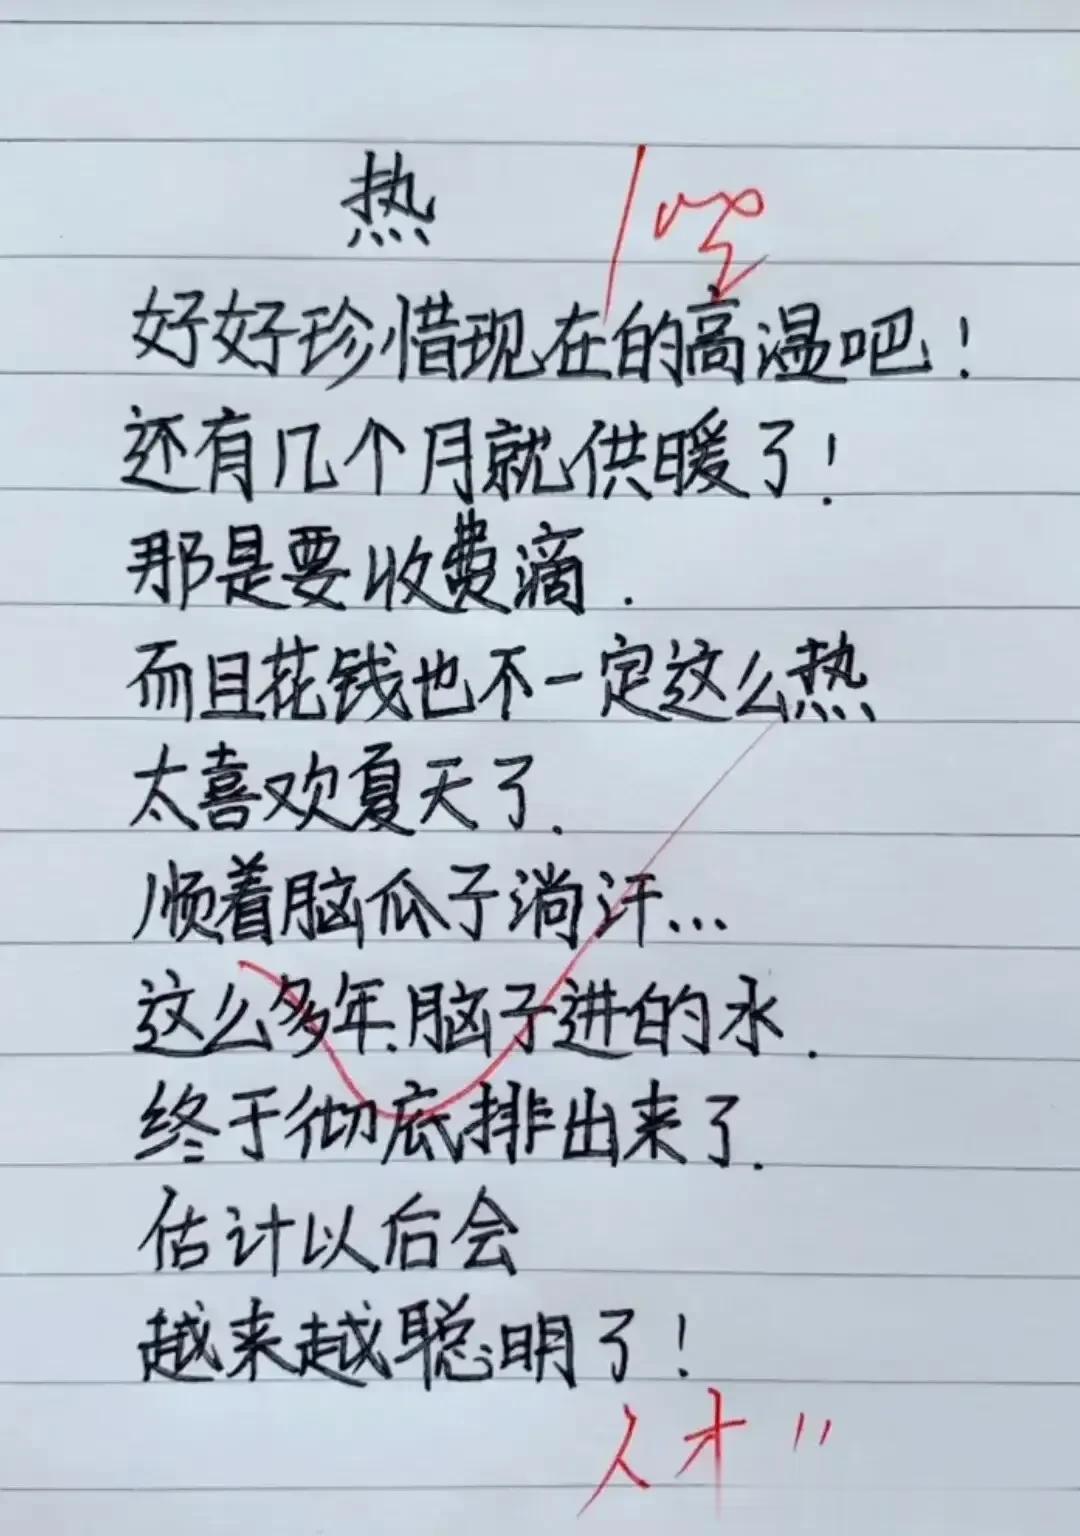 热
好好珍惜现在的高温吧！
还有几个月就供暖了！
那是要收费滴.
而且花钱也不一定这么热
太喜欢夏天了.
顺着脑瓜子淌汗...
这么多年.脑子进的水.
终于彻底排出来了.
估计以后会
越来越聪明了！
人才!!